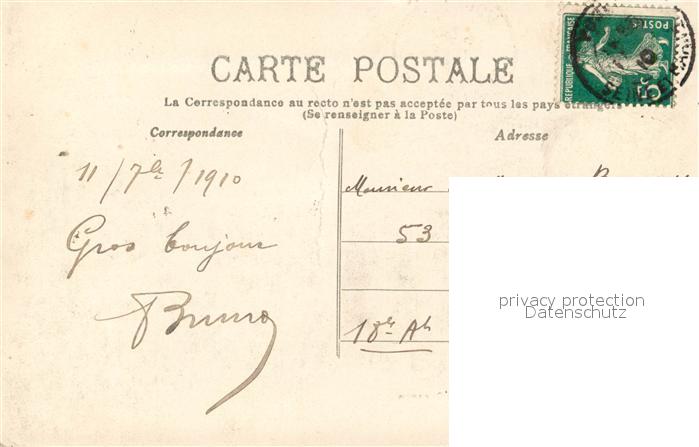 CARTE POSTALE
La Correspondance au recto n'est pas acceptée par tous les pays étrangers
(Se renseigner à la Poste)
Correspondance
Adresse
REPUBLIQUE FRANÇAISE
POSTES
5c
11/7bre/1910
Gros bonjour
Bruno
Monsieur
53
18e
privacy protection
Datenschutz